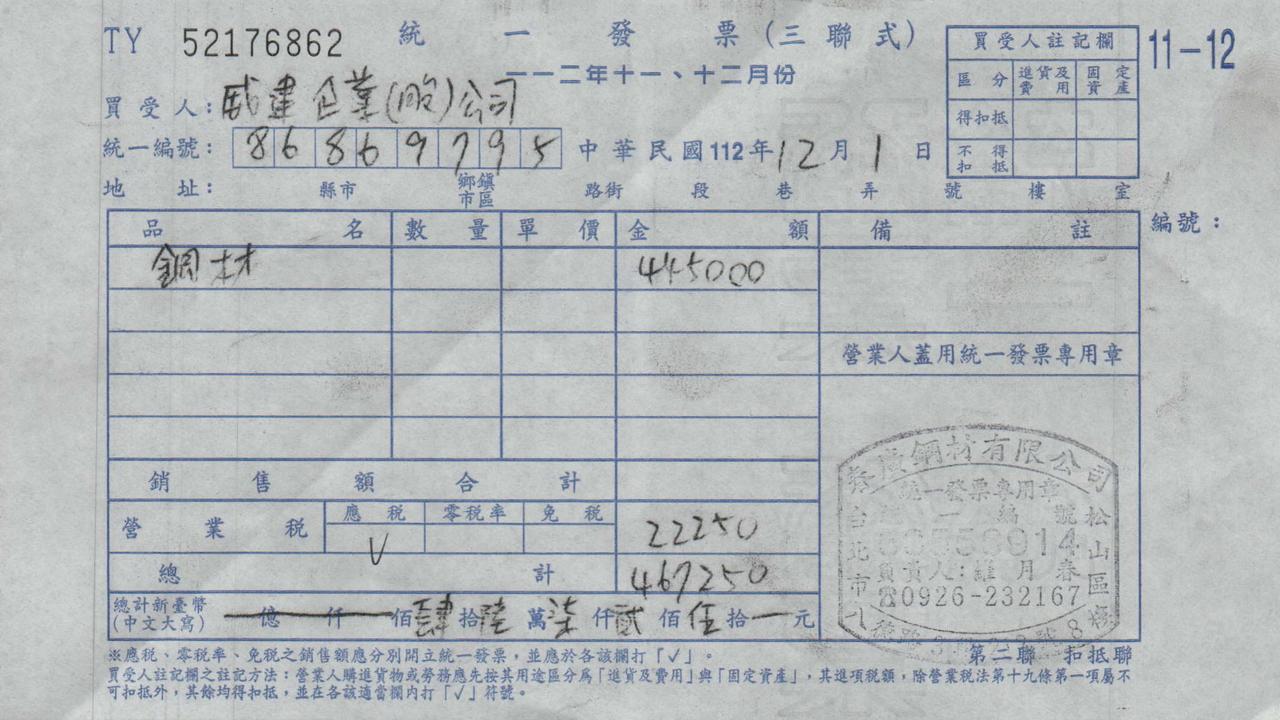 TY 52176862 統一發票(三聯式)
一一二年十一、十二月份
11-12
買受人註記欄
區分 進貨及費用 固定資產
得扣抵
不得扣抵
買受人: 威建企業(股)公司
統一編號: 86869795 中華民國112年12月1日
地址: 縣市 鄉鎮市區 路街 段 巷 弄 號 樓 室
品名 數量 單價 金額 備註 編號:
鋼材 445000
營業人蓋用統一發票專用章
銷售額合計
營業稅 應稅 零稅率 免稅 22250
V
總計 467250
總計新臺幣(中文大寫) 億 仟 佰肆拾陸萬柒仟貳佰伍拾一元
鋼材有限公司
統一發票專用章
一編號
914
負責人: 月春
☎0926-232167
台北市
松山區
第二聯 扣抵聯
※應稅、零稅率、免稅之銷售額應分別開立統一發票,並應於各該欄打「✓」。
買受人註記欄之註記方法:營業人購進貨物或勞務應先按其用途區分為「進貨及費用」與「固定資產」,其進項稅額,除營業稅法第十九條第一項屬不
可扣抵外,其餘均得扣抵,並在各該適當欄內打「✓」符號。